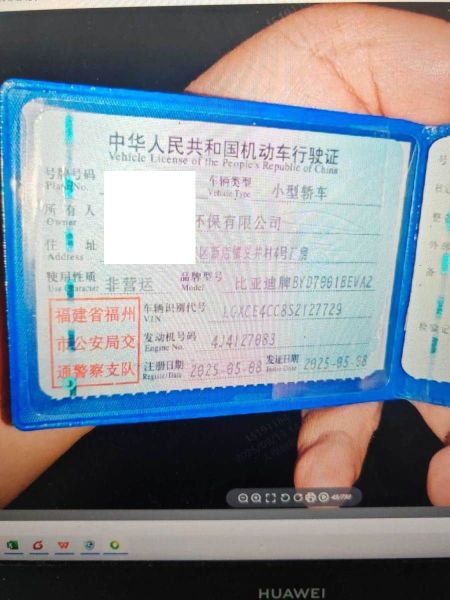 中华人民共和国机动车行驶证
Vehicle License of the People's Republic of China
号牌号码
Plate No.
车辆类型
Vehicle Type
小型轿车
所有人
Owner
环保有限公司
住址
Address
区新店镇
村4号厂房
使用性质
Use Character
非营运
品牌型号
Model
比亚迪牌BYD7901BEVA2
福建省福州
市公安局交
通警察支队
车辆识别代号
VIN
LGXCE4CC8S2127729
发动机号码
Engine No.
4J4127083
注册日期
Register Date
2025-05-08
发证日期
Issue Date
2025-05-08
HUAWEI